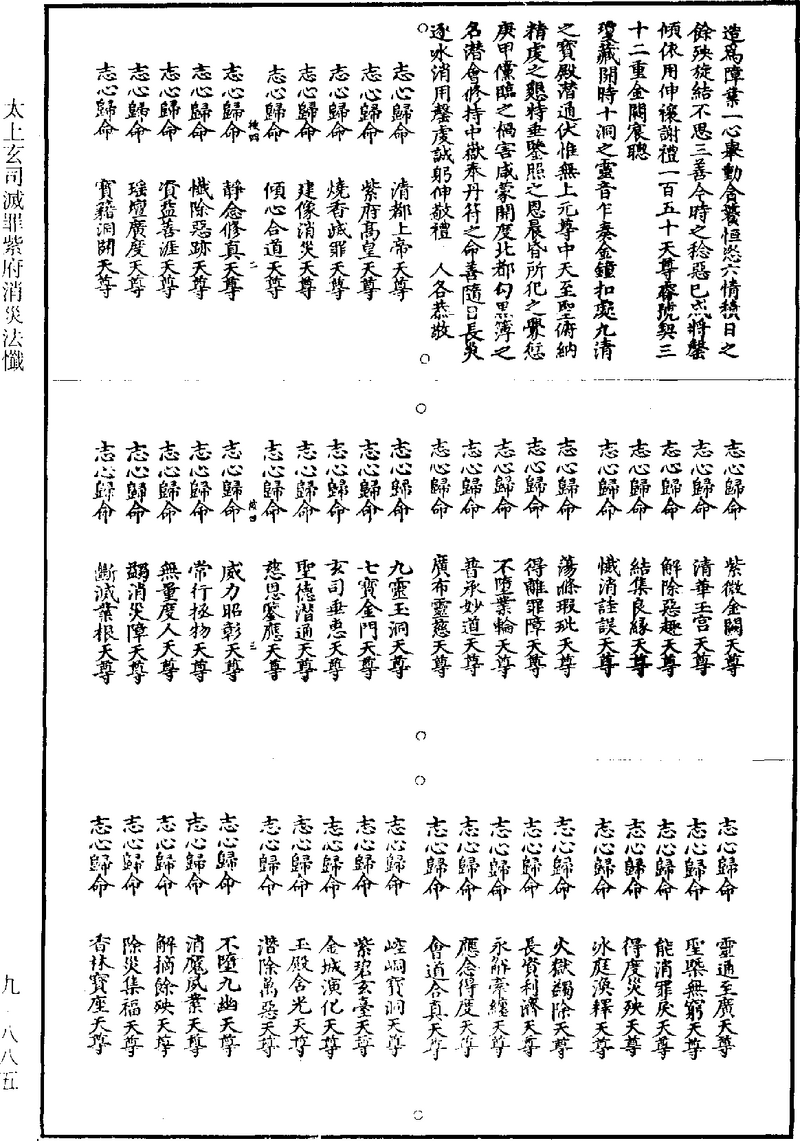 太上玄司滅罪紫府消災法懺
造爲障業一心舉動含養恒恣六情積日之
餘殃旋結不思三善今時之稔惡已盈將罄
傾依用伸懺謝禮一百五十天尊睿號契三
十二重金闕宸聰
瓊藏開時十洞之靈音乍奏金鐘扣處九清
之寶殿潛通伏惟無上元尊中天至聖俯納
精虔之懇特垂鑒照之恩晨昏所犯之釁愆
庚甲儻臨之禍害咸蒙開度北都勾黑簿之
名潛會修持中嶽奉丹符之命善隨日長災
逐冰消用罄虔誠躬伸敬禮 人各恭敬
志心歸命 清都上帝天尊
志心歸命 紫府高皇天尊
志心歸命 燒香滅罪天尊
志心歸命 建像消災天尊
志心歸命 傾心合道天尊
志心歸命 靜念修真天尊 二
志心歸命 懺除惡跡天尊
志心歸命 資益善涯天尊
志心歸命 瑶壇廣度天尊
志心歸命 寶籍洞開天尊
志心歸命 紫微金闕天尊
志心歸命 清華王宫天尊
志心歸命 解除惡趣天尊
志心歸命 結集良緣天尊
志心歸命 懺消詿誤天尊
志心歸命 蕩滌瑕玼天尊
志心歸命 得離罪障天尊
志心歸命 不墮業輪天尊
志心歸命 普承妙道天尊
志心歸命 廣布靈慈天尊
志心歸命 九靈玉洞天尊
志心歸命 七寶金門天尊
志心歸命 玄司垂惠天尊
志心歸命 聖德潛通天尊
志心歸命 慈恩鑒應天尊
志心歸命 威力昭彰天尊 三
志心歸命 常行拯物天尊
志心歸命 無量度人天尊
志心歸命 蠲消災障天尊
志心歸命 斷滅業根天尊
志心歸命 靈通至廣天尊
志心歸命 聖槩無窮天尊
志心歸命 能消罪戾天尊
志心歸命 得度災殃天尊
志心歸命 冰庭渙釋天尊
志心歸命 火獄蠲除天尊
志心歸命 長資利濟天尊
志心歸命 永解牽纏天尊
志心歸命 應念得度天尊
志心歸命 會道合真天尊
志心歸命 崆峒寶洞天尊
志心歸命 紫碧玄臺天尊
志心歸命 金城演化天尊
志心歸命 玉殿含光天尊
志心歸命 潛除萬惡天尊
志心歸命 不墮九幽天尊
志心歸命 消魔威業天尊
志心歸命 解摘餘殃天尊
志心歸命 除災集福天尊
志心歸命 香林寶座天尊
九 八八五